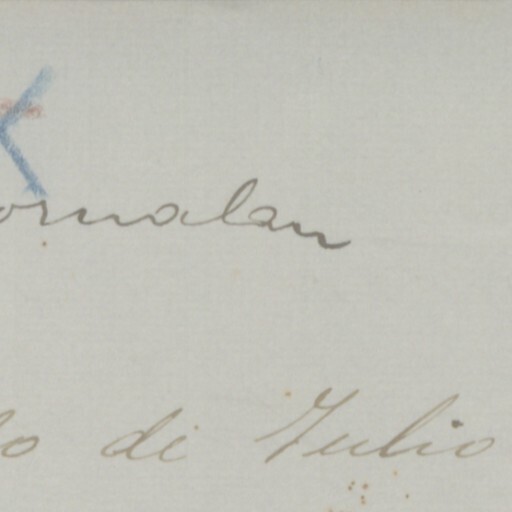 ornalan
lo di Julio